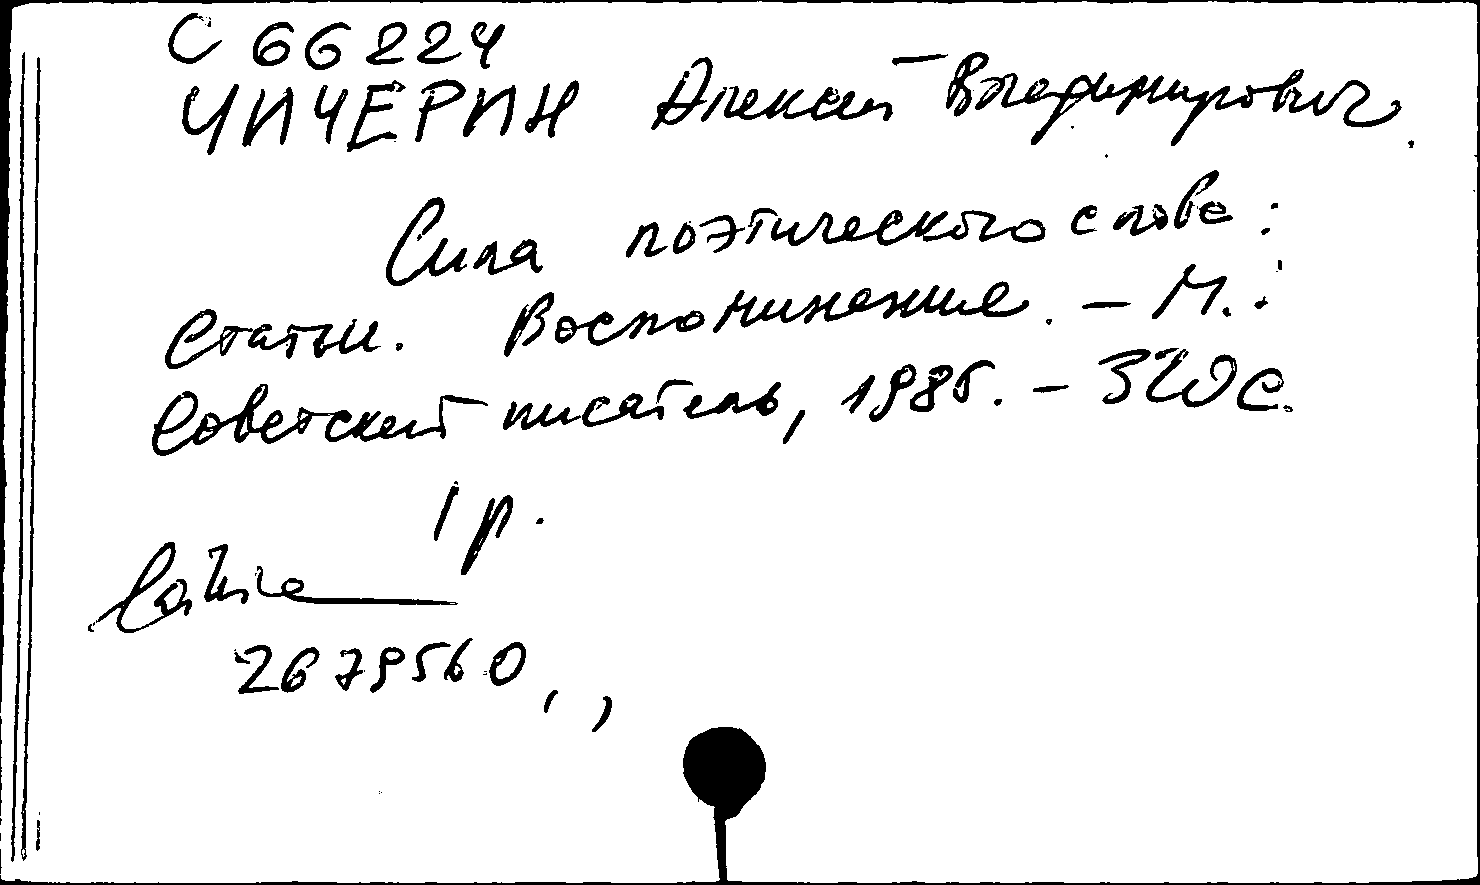 С 66224
ЧИЧЕРИН Алексей Владимирович.
Сила поэтического слова:
Статьи. Воспоминания. – М.:
Советский писатель, 1985. – 320 с.
1 р.
2679560,,